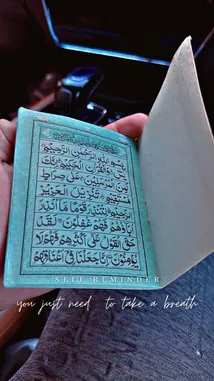 بِسْمِ اللهِ الرَّحْمٰنِ الرَّحِيْمِ
يٰسٓ وَالْقُرْاٰنِ الْحَكِيْمِ اِنَّكَ
لَمِنَ الْمُرْسَلِيْنَ عَلٰى صِرَاطٍ
مُّسْتَقِيْمٍ تَنْزِيْلَ الْعَزِيْزِ
الرَّحِيْمِ لِتُنْذِرَ قَوْمًا مَّآ اُنْذِرَ
اٰبَآؤُهُمْ فَهُمْ غٰفِلُوْنَ لَقَدْ
حَقَّ الْقَوْلُ عَلٰٓى اَكْثَرِهِمْ فَهُمْ لَا
يُؤْمِنُوْنَ اِنَّا جَعَلْنَا فِيْٓ اَعْنَاقِهِمْ
SELF REMINDER
you just need to take a breath